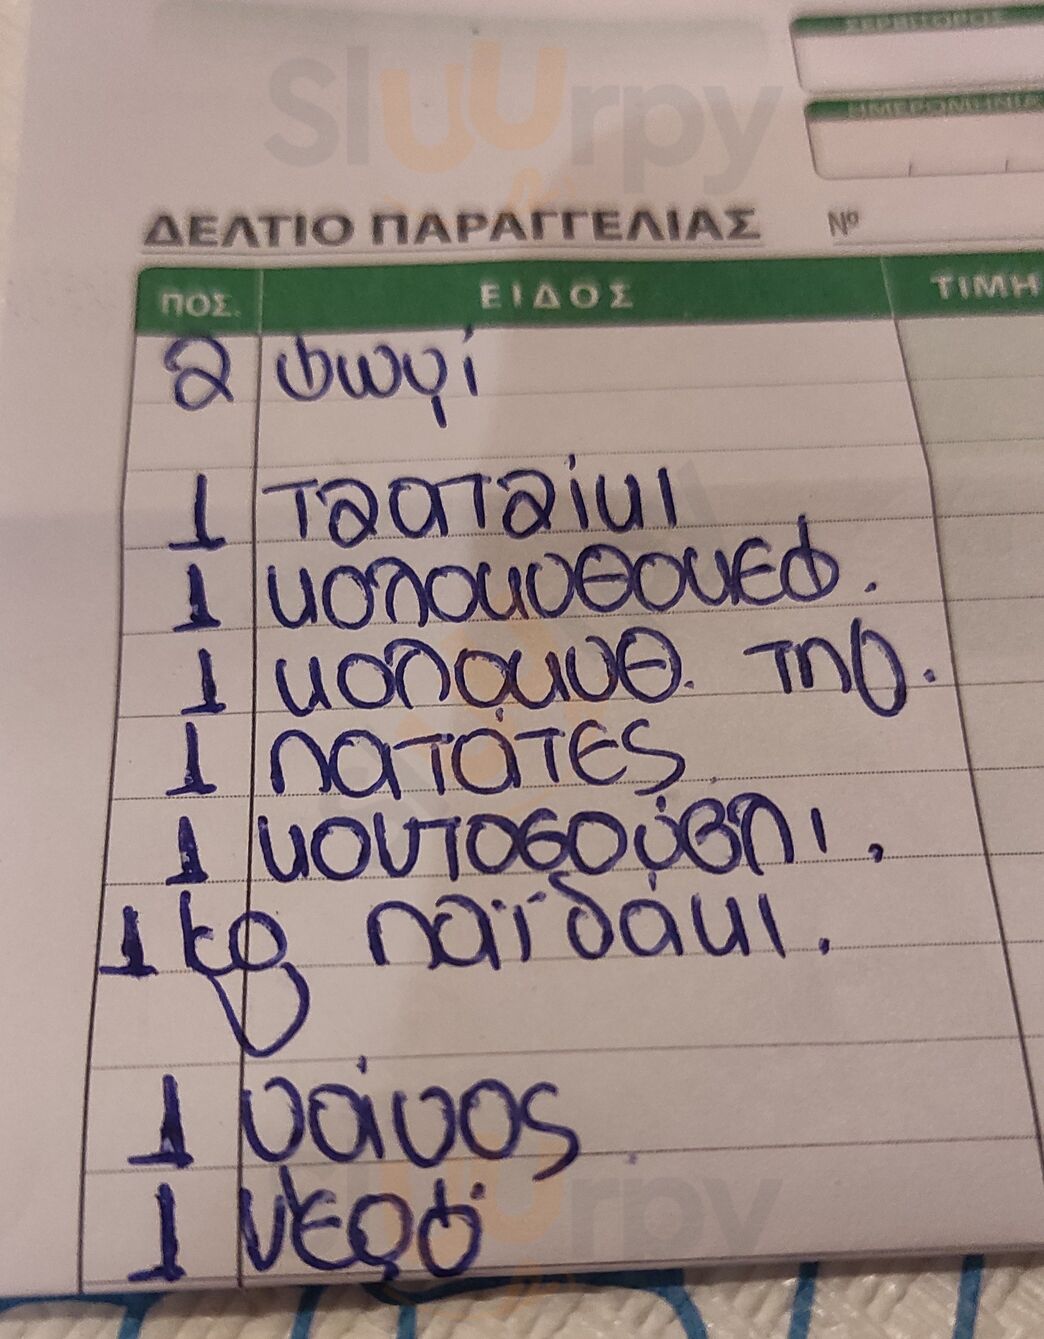 Sluurpy
ΣΕΡΒΙΤΟΡΟΣ
ΗΜΕΡΟΜΗΝΙΑ
ΔΕΛΤΙΟ ΠΑΡΑΓΓΕΛΙΑΣ Νº
ΠΟΣ. ΕΙΔΟΣ ΤΙΜΗ
2 ψωμί
1 τζατζίκι
1 κολοκυθοκεφ.
1 κολοκυθ. τηγ.
1 πατάτες
1 κοντοσούβλι.
1 kg παϊδάκι.
1
1 νερό
Sluurpy